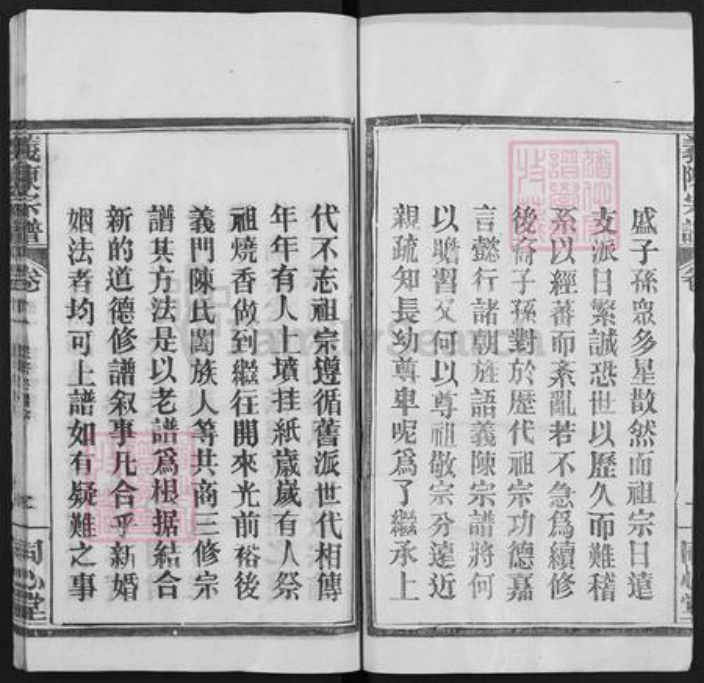 盛子孫眾多星散然而祖宗日遠
支派日繁誠恐世以歷久而難稽
系以經蕃而紊亂若不急為續修
後裔子孫對於歷代祖宗功德嘉
言懿行諸朝旌語義陳宗譜將何
以瞻習又何以尊祖敬宗分遠近
親疏知長幼尊卑呢為了繼承上
同心堂
義陳宗譜
卷
代不忘祖宗遵循舊派世代相傳
年年有人上墳挂紙歲歲有人祭
祖燒香做到繼往開來光前裕後
義門陳氏闔族人等共商三修宗
譜其方法是以老譜為根据結合
新的道德修譜叙事凡合乎新婚
姻法者均可上譜如有疑難之事
義陳宗譜
卷
同心堂
FamilySearch